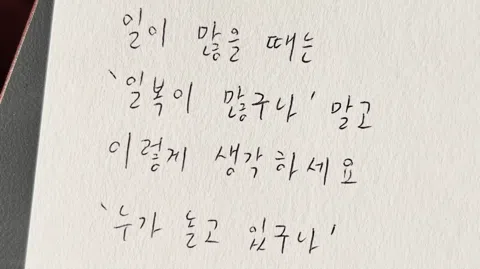 일이 많을 때는
'일복이 많구나' 말고
이렇게 생각하세요
'누가 놀고 있구나'